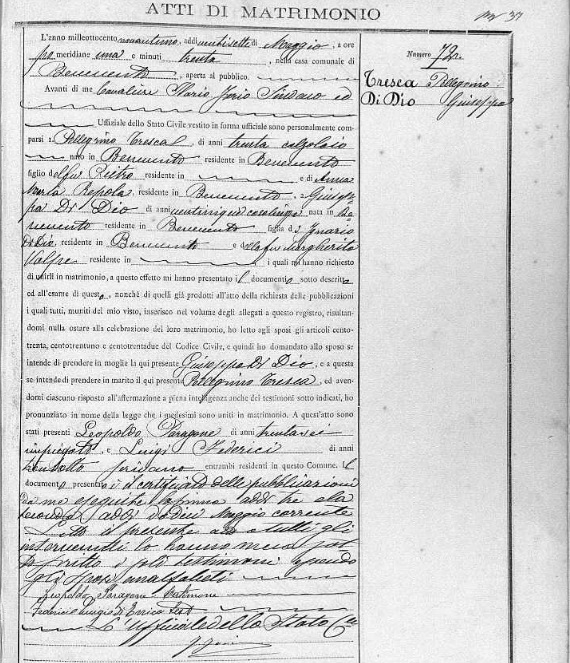 ATTI DI MATRIMONIO
N° 37
Numero 72
Tresca Pellegrino
Di Dio Giuseppa
L'anno milleottocento novantuno, addì ventisette di Maggio, a ore
po meridiane una e minuti trenta, nella casa comunale di
Benevento, aperta al pubblico.
Avanti di me Cavaliere Ilario Jorio Sindaco ed
Uffiziale dello Stato Civile vestito in forma ufficiale sono personalmente com-
parsi 1. Pellegrino Tresca di anni trenta calzolaio
nato in Benevento residente in Benevento
figlio del fu Pietro residente in e di Anna
Maria Repola residente in Benevento, 2 Giusep
pa Di Dio di anni venticinque casalinga nata in Be
nevento residente in Benevento figlia di Ignazio
Di Dio, residente in Benevento e della fu Margherita
Volpe residente in i quali mi hanno richiesto
di unirli in matrimonio, a questo effetto mi hanno presentato il documento sotto descritto
ed all'esame di questo, nonchè di quelli già prodotti all'atto della richiesta delle pubblicazioni
i quali tutti, muniti del mio visto, inserisco nel volume degli allegati a questo registro, risultan-
domi nulla ostare alla celebrazione del loro matrimonio, ho letto agli sposi gli articoli cento-
trenta, centotrentuno e centotrentadue del Codice Civile, e quindi ho domandato allo sposo se
intende di prendere in moglie la qui presente Giuseppa Di Dio, e a questa
se intende di prendere in marito il qui presente Pellegrino Tresca, ed aven-
domi ciascuno risposto affermativamente a piena intelligenza anche dei testimoni sotto indicati, ho
pronunziato in nome della legge che i medesimi sono uniti in matrimonio. A quest'atto sono
stati presenti Leopoldo Paragone di anni trentasei
impiegato, e Luigi Federici di anni
trentotto scrivano entrambi residenti in questo Comune. Il
documento presentato è il certificato delle pubblicazioni
da me eseguite la prima addì tre e la
seconda addì dodici Maggio corrente
Letto il presente atto a tutti gli
intervenuti lo hanno meco sot
toscritto i soli testimoni essendo
gli sposi analfabeti
Leopoldo Paragone testimone
Federici Luigi di Enrico Test
L'Uffiziale dello Stato Ci